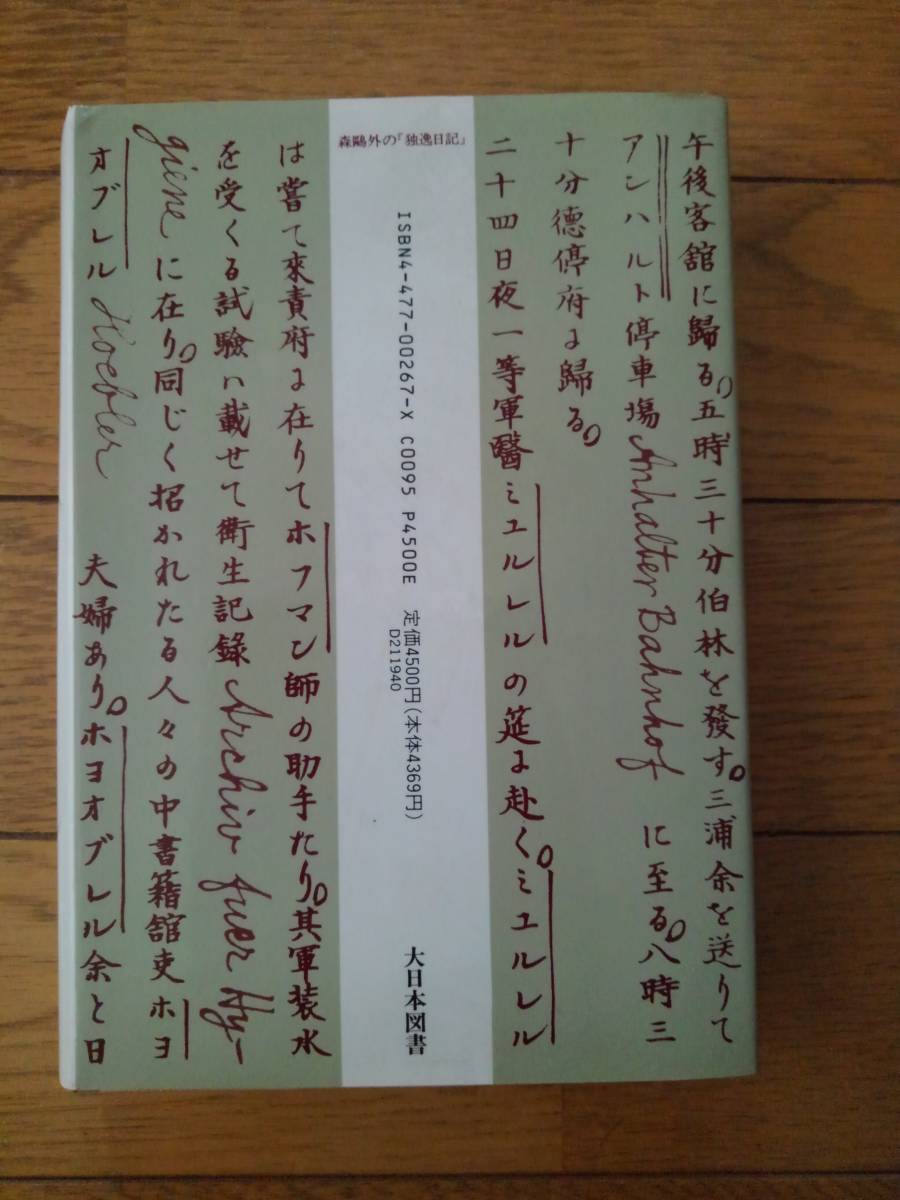 午後客舘に歸る。五時三十分伯林を發す。三浦余を送りて
アンハルト停車塲Anhalter Bahnhof に至る。八時三
十分德停府に歸る。
二十四日夜一等軍醫ミユルレルの筵に赴く。ミユルレル
森鷗外の『独逸日記』
ISBN4-477-00267-X C0095 P4500E 定価4500円(本体4369円)
D211940
大日本図書
は嘗て來責府に在りてホフマン師の助手たり。其軍装水
を受くる試驗ハ載せて衛生記錄Archiv fuer Hy-
giene に在り。同じく招かれたる人々の中書籍舘吏ホヨ
オブレル Hoebler 夫婦あり。ホヨオブレル余と日